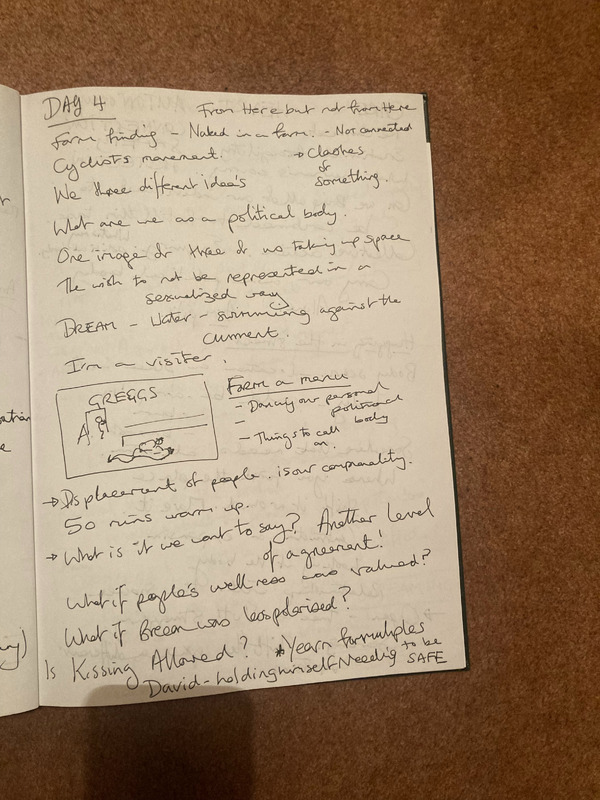 DAY 4
From Here but not from Here
Form finding - Naked in a form. - Not connected
Cyclists movement.
→ Clashes
or
something.
We three different idea's
What are we as a political body.
One image or three or us taking up space
The wish to not be represented in a
sexualized way
DREAM - Water - swimming against the
current.
I'm a visiter.
GREGGS
A
Form a menu
- Dancing our personal
- political
body
- Things to call
on.
→ Displacement of people. is our commonality.
50 runs warm up.
→ What is it we want to say? Another level
of agreement!
What if people's wellness was valued?
What if was less polarised?
Is Kissing Allowed?
* Yearn for multiples
David - holding himself Needing to be
SAFE